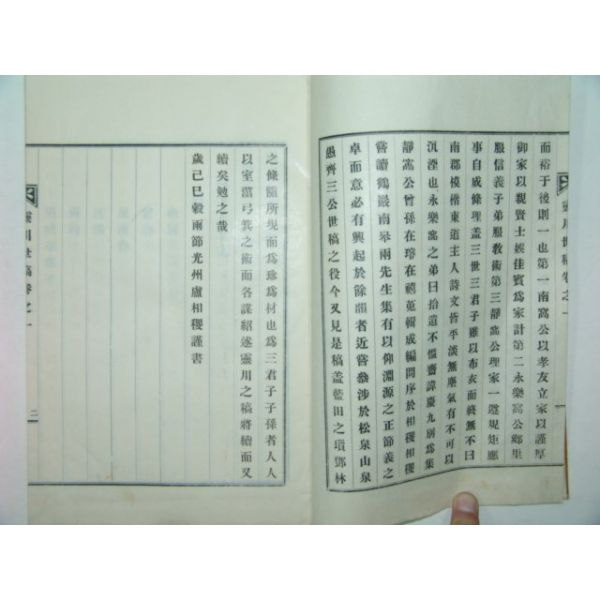 而裕于後則一也第一南窩公以孝友立家以謹厚
御家以親賢士娛佳賓爲家計第二永樂窩公鄉里
服信義子弟服敎術第三靜窩公理家一遵規矩應
事自威條理盖三世三君子雖以布衣而終無不曰
南郡模楷東道主人詩文皆平淡無塵氣有不可以
沉湮也永樂窩之弟曰拾遺不慍齋諱慶九別爲集
靜窩公曾孫在
嘗讀鶴嚴南皐兩先生集有以仰淵源之正節義之
卓而意必有興起於餘韻者近嘗叅涉於松泉山泉
愚齊三公世稿之役今又見是稿盖藍田之瓊鄧林
之條隨所現而爲珍爲材也爲三君子子孫者人人
以室蓄弓箕之術而各謀紹述靈川之稿將續而又
續矣勉之哉
歲己巳穀雨節光州盧相稷謹書
靈川世稿卷之一
一
靈川世稿卷之一
二